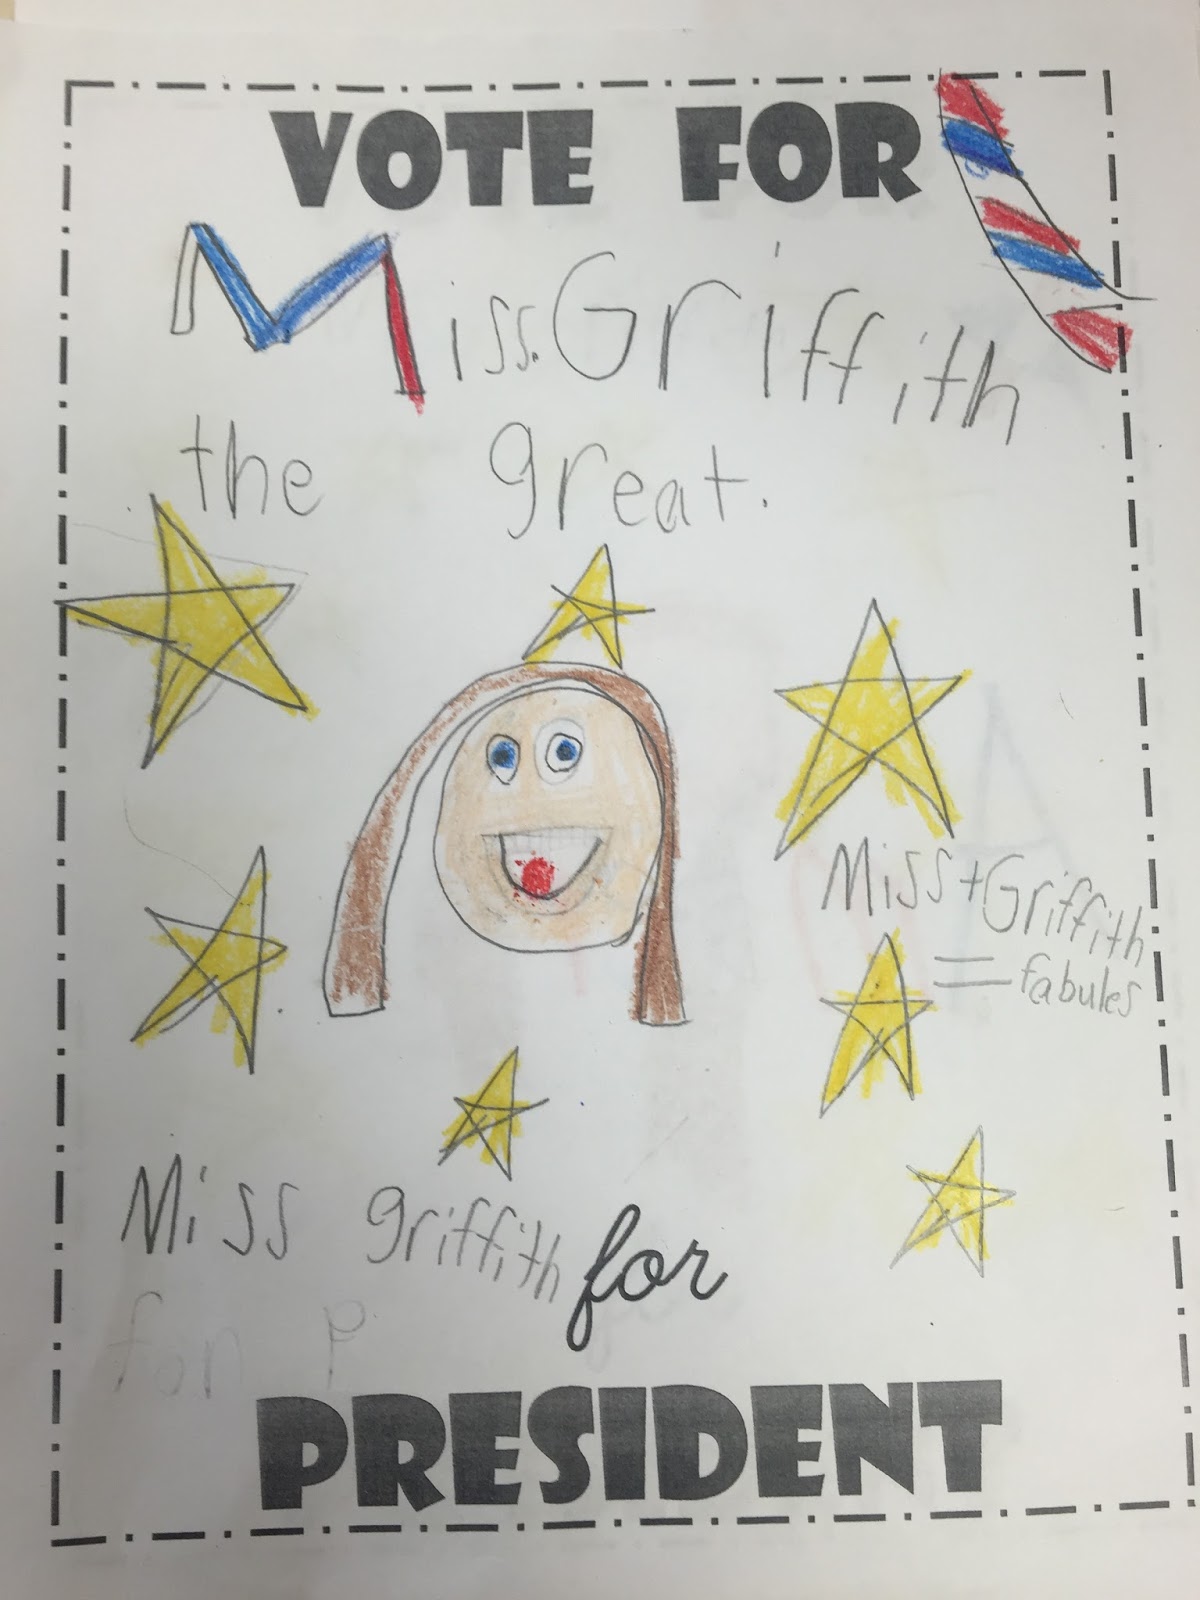 VOTE FOR
Miss. Griffith
the great.
Miss + Griffith
= fabules
Miss griffith for
for P
PRESIDENT